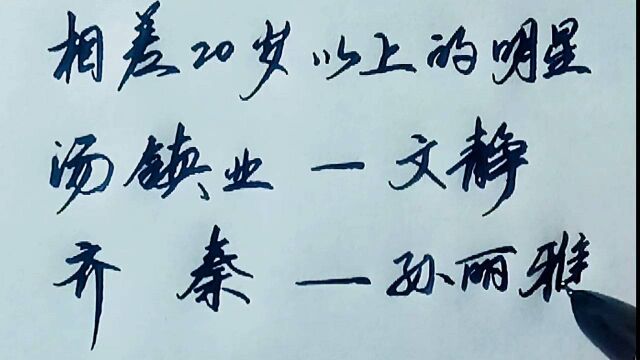 相差20岁以上的明星
汤镇业—文静
齐秦—孙丽雅